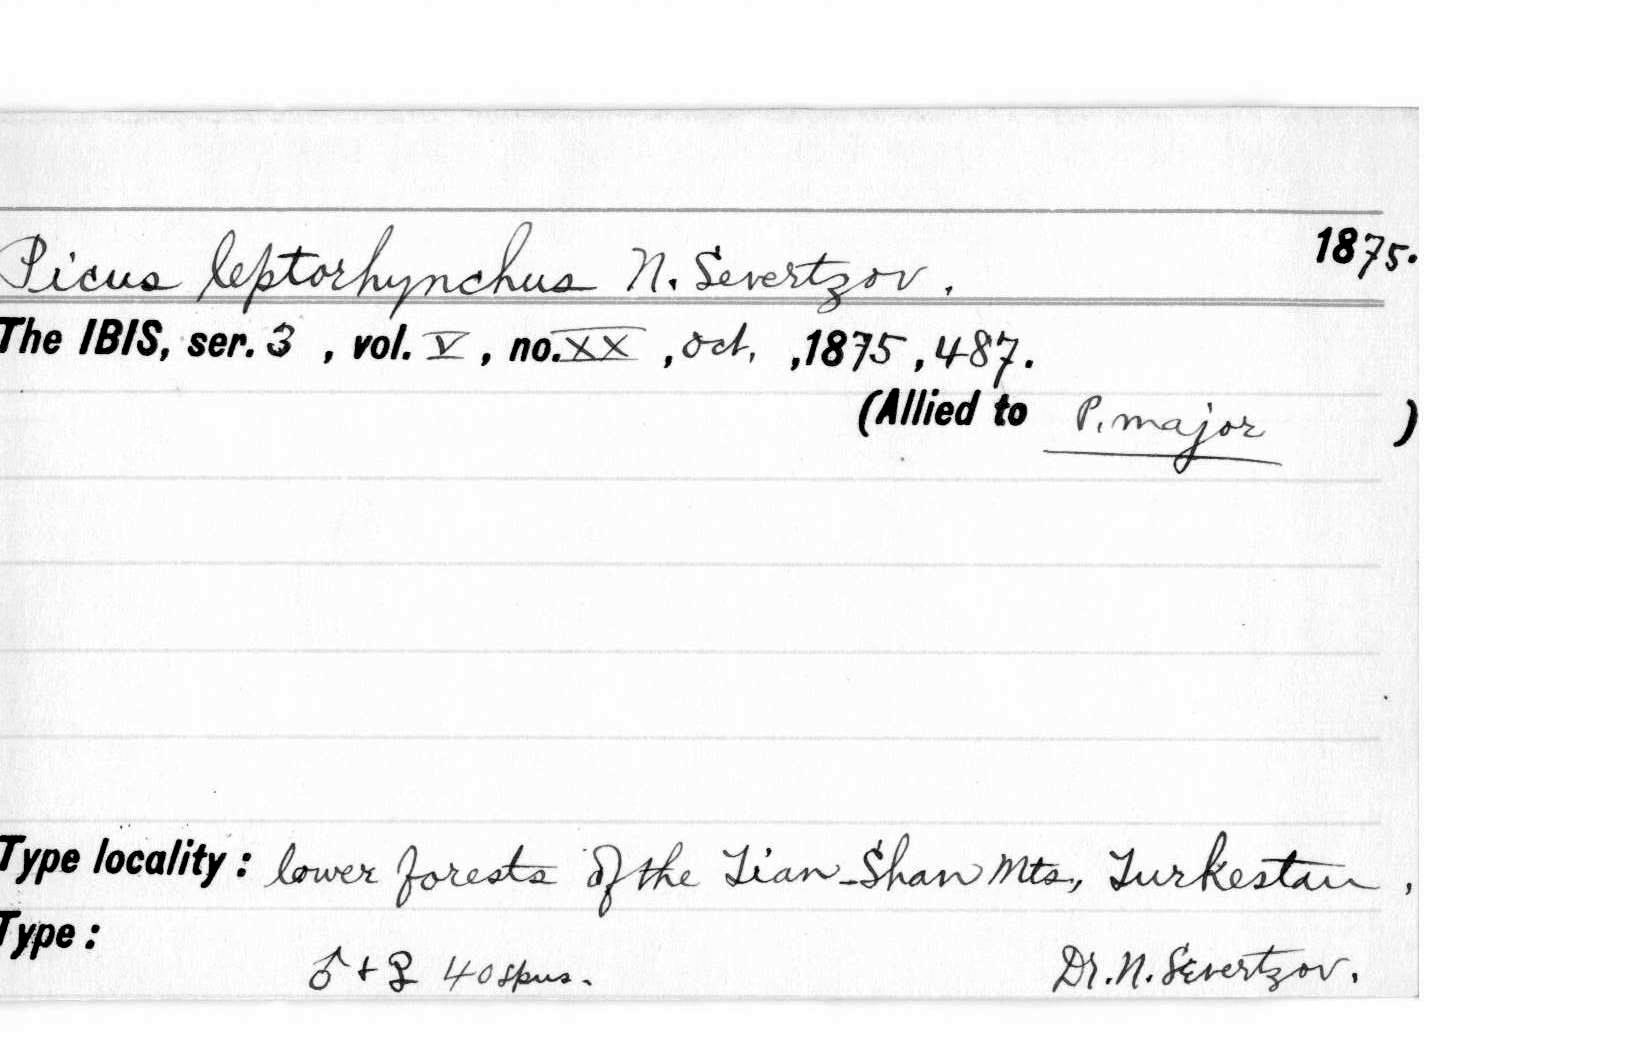 1875.
Picus leptorhynchus N. Severtzov.
The IBIS, ser. 3 , vol. V , no. XX , oct. , 1875 , 487.
(Allied to P. major )
Type locality : lower forests of the Tian-Shan Mts., Turkestan ,
Type :
♂ + ♀ 40 spns. Dr. N. Severtzov.